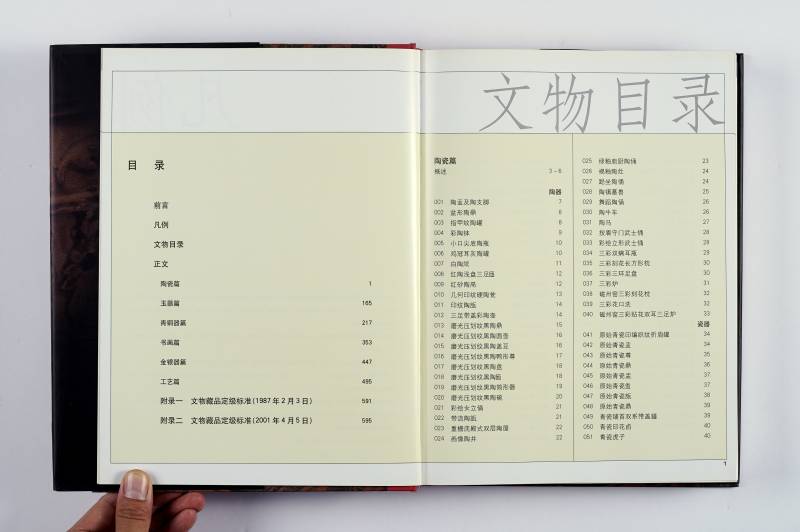 目 录
前言
凡例
文物目录
正文
陶瓷篇 1
玉器篇 165
青铜器篇 217
书画篇 353
金银器篇 447
工艺篇 495
附录一 文物藏品定级标准(1987年2月3日) 591
附录二 文物藏品定级标准(2001年4月5日) 595
文物目录
陶瓷篇
概述 3-6
陶器
001 陶盂及陶支脚 7
002 盆形陶鼎 8
003 指甲纹陶罐 8
004 彩陶钵 9
005 小口尖底陶瓶 10
006 鸡冠耳灰陶罐 10
007 白陶鬶 11
008 红陶浅盘三足 12
009 红砂陶鬲 12
010 几何印纹硬陶瓮 13
011 印纹陶瓿 14
012 三足带盖彩陶壶 14
013 磨光压划纹黑陶鼎 15
014 磨光压划纹黑陶圆壶 16
015 磨光压划纹黑陶盖豆 16
016 磨光压划纹黑陶鸭形尊 17
017 磨光压划纹黑陶盘 17
018 磨光压划纹黑陶 18
019 磨光压划纹黑陶筒形器 19
020 磨光压划纹黑陶碗 20
021 彩绘女立俑 21
022 带流陶瓿 21
023 重檐庑殿式双层陶屋 22
024 画像陶井 22
025 绿釉庖厨陶俑 23
026 褐釉陶灶 24
027 跽坐陶俑 24
028 陶镇墓兽 25
029 舞蹈陶俑 26
030 陶牛车 26
031 陶马 27
032 按盾守门武士俑 28
033 彩绘立形武士俑 29
034 三彩双螭耳瓶 29
035 三彩刻花长方形枕 30
036 三彩三环足盘 30
037 三彩炉 31
038 磁州窑三彩刻花枕 32
039 三彩花口洗 32
040 磁州窑三彩贴花双耳三足炉 33
瓷器
041 原始青瓷印编织纹折肩罐 34
042 原始青瓷盂 34
043 原始青瓷尊 35
044 原始青瓷鼎 36
045 原始青瓷盂 37
046 原始青瓷盉 37
047 原始青瓷瓿 38
048 原始青瓷鼎 39
049 青瓷铺首双系带盖罐 39
050 青瓷印花卣 40
051 青瓷虎子 40
1